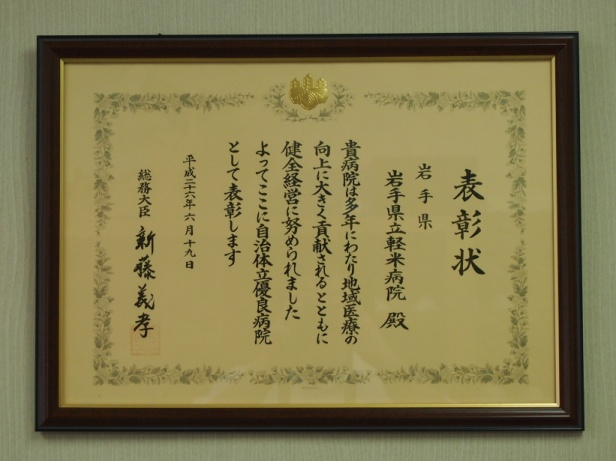 表彰状
岩手県
岩手県立軽米病院 殿
貴病院は多年にわたり地域医療の
向上に大きく貢献されるとともに
健全経営に努められました
よってここに自治体立優良病院
として表彰します
平成二十六年六月十九日
総務大臣 新藤義孝